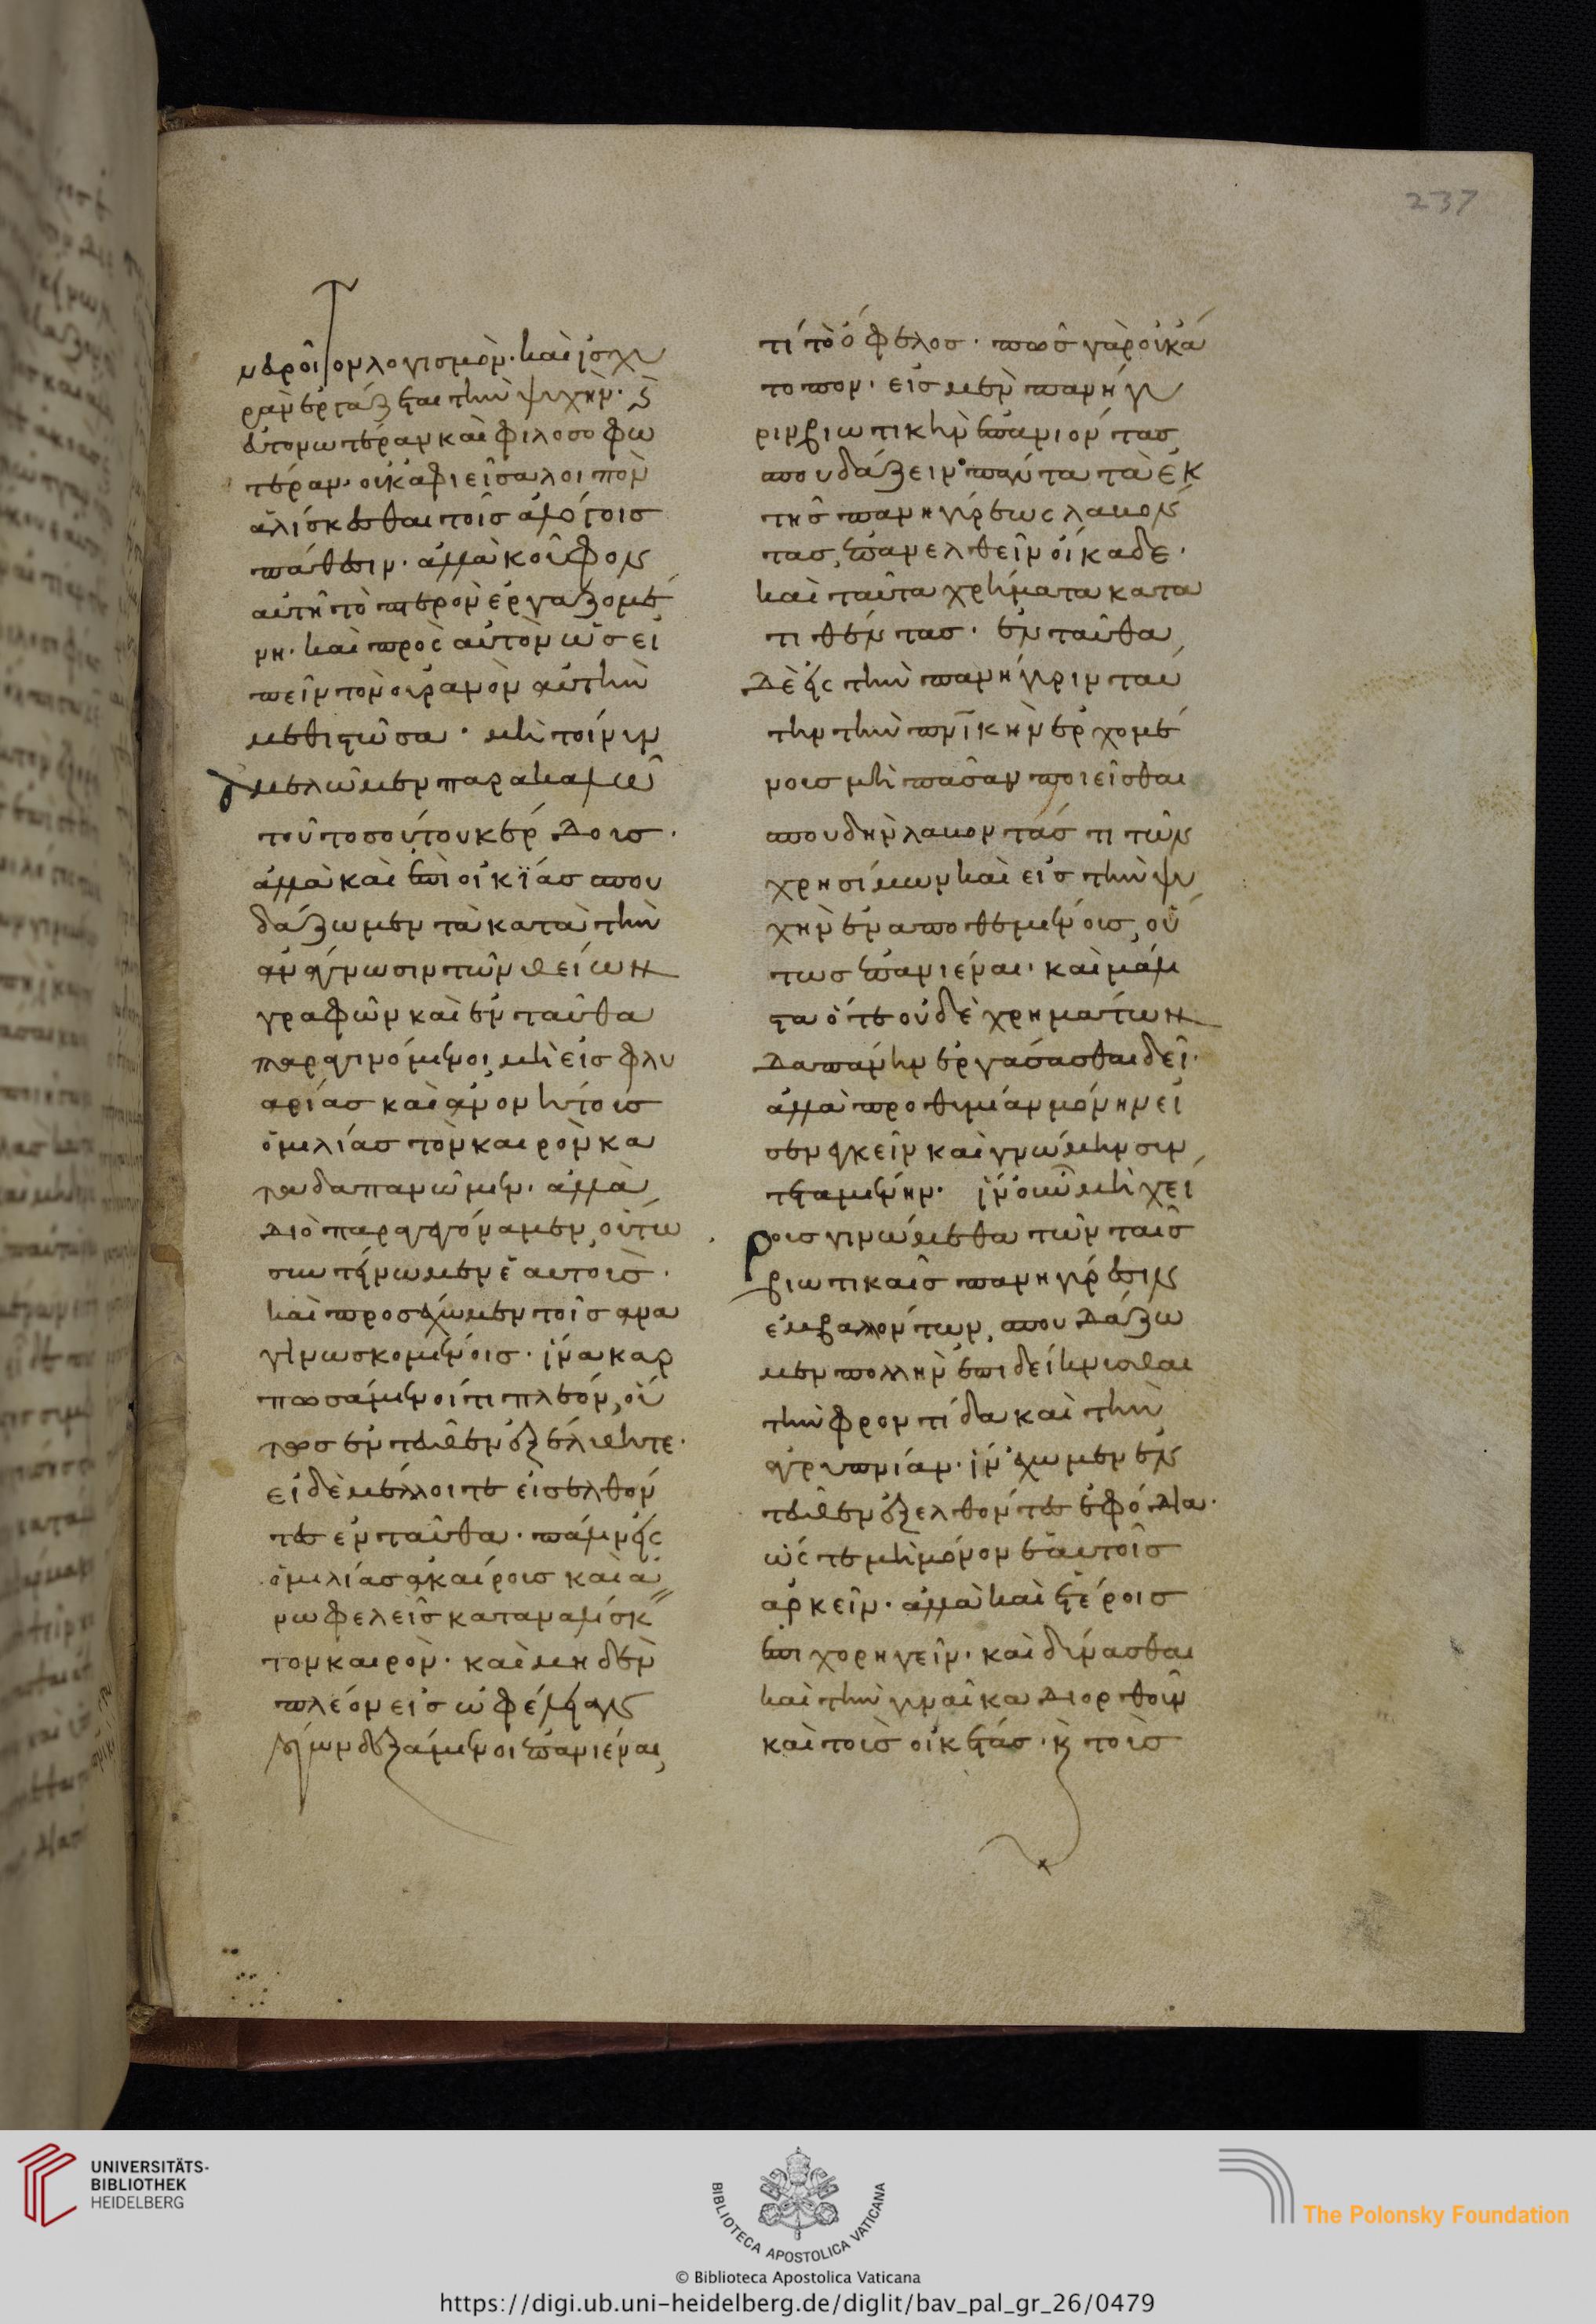 νευροῖ τὸν λογισμὸν· καὶ ἰσχυ
ρὰν ἐργάζεται τὴν ψυχὴν· καὶ
εὐτονωτέραν καὶ φιλοσοφω
τέραν· οὐκ ἀφιεῖσα λοιπὸν
ἁλίσκεσθαι τοῖς ἀλόγοις
πάθεσιν· ἀλλὰ κοῦφον
αὐτῆ τὸ πτερὸν ἐργαζομέ
νη· καὶ πρὸς αὐτὸν ὡς εἰ
πεῖν τὸν οὐρανὸν αὐτὴν
μεθιστῶσα· μὴ τοίνυν
ἀμελῶμεν παρακαλῶ
τοῦ τοσούτου κέρδους·
ἀλλὰ καὶ ἐπὶ οἰκΐας σπου
δάζωμεν τὰ κατὰ τὴν
ἀνάγνωσιν τῶν θείων
γραφῶν καὶ ἐνταῦθα
παραγινόμενοι μὴ εἰς φλυ
αρίας καὶ ἀνονήτους
ὁμιλίας τὸν καιρὸν κα
ταδαπανῶμεν· ἀλλὰ
διὸ παραγεγόναμεν, οὕτω
συντείνωμεν ἑαυτοὺς·
καὶ προσέχωμεν τοῖς ανα
γινωσκομένοις· ἵνα καρ
πωσάμενοί τι πλέον, οὕ
τως ἐντεῦθεν ἐξέλθητε·
εἰ δὲ μέλλοιτε εἰσελθόν
τες ἐνταῦθα· πάλιν εἰς
ὁμιλίας ἀκαίρους καὶ ἀ
νωφελεῖς καταναλίσκειν
τον καιρὸν· καὶ μηδὲν
πλέον εἰς ὠφέλειαν
δεξάμενοι ἐπανιέναι,
237
τί τὸ ὄφελος· πῶς γὰρ οὐκ ἄ
τοπον· εἰς μὲν πανήγυ
ριν βιωτικὴν ἐπανιόντας
σπουδάζειν πάντα τὰ ἐκ
τῆς πανηγύρεως λαβόν
τας, ἐπανελθεῖν οἴκαδε·
καὶ ταῦτα χρήματα κατα
τιθέντας· ἐνταῦθα
δὲ εἰς τὴν πανήγυριν ταύ
την τὴν πν̅ικὴν ἐρχομέ
νους μὴ πᾶσαν ποιεῖσθαι
σπουδὴν λαβόντάς τι τῶν
χρησίμων καὶ εἰς τὴν ψυ
χὴν ἐναποθεμένους, οὕ
τως ἐπανιέναι· καὶ μάλι
στα ὅτε οὐδὲ χρημάτων
δαπάνην ἐργάσασθαι δεῖ·
ἀλλὰ προθυμίαν μόνην εἰ
σενεγκεῖν καὶ γνώμην συν
τεταμένην· ἵν' οὖν μὴ χεί
ρους γινώμεθα τῶν ταῖς
βιωτικαῖς πανηγύρεσιν
ἐμβαλλόντων, σπουδάζω
μεν πολλὴν ἐπιδείκνυσθαι
τὴν φροντίδα καὶ τὴν
ἀγρυπνίαν· ἵν' ἔχωμεν ἐν
τεῦθεν ἐξελθόντες ἐφόδια·
ὥστε μὴ μόνον ἑαυτοῖς
ἀρκεῖν· ἀλλὰ καὶ ἑτέροις
ἐπιχορηγεῖν· καὶ δύνασθαι
καὶ τὴν γυναῖκα διορθοῦν
καὶ τοὺς οἰκέτας· καὶ τοὺς
UNIVERSITÄTS-
BIBLIOTHEK
HEIDELBERG
BIBLIOTECA APOSTOLICA VATICANA
© Biblioteca Apostolica Vaticana
The Polonsky Foundation
https://digi.ub.uni-heidelberg.de/diglit/bav_pal_gr_26/0479